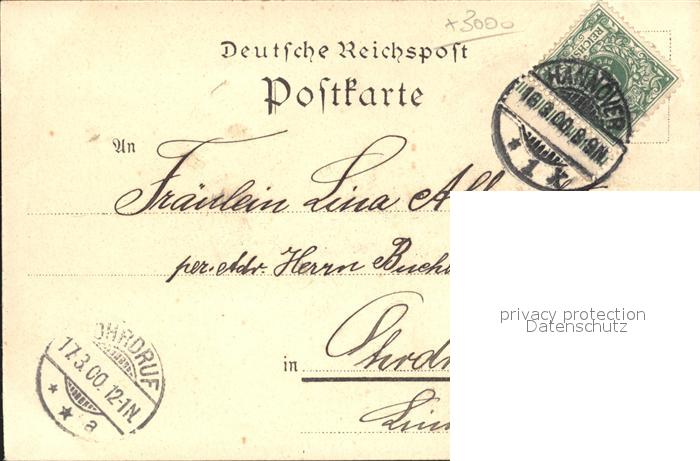 +3000
Deutsche Reichspost
Postkarte
REICHSPOST
HANNOVER
* 1 X
An
Fräulein Lina
per. Adr. Herrn
in
OHRDRUF
17.3.00.12-1N.
* * a
privacy protection
Datenschutz